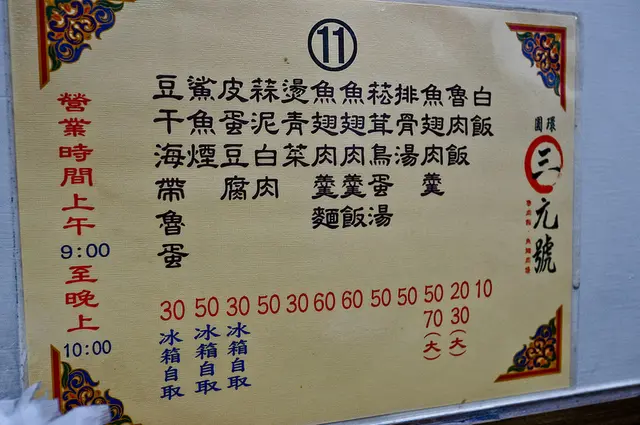 ⑪
圓環
三元號
白飯 10
魯肉飯 20 30(大)
魚翅肉羹 50 70(大)
排骨湯 50
菘茸鳥蛋湯 50
魚翅肉羹飯 60
魚翅肉羹麵 60
燙青菜 30
蒜泥白肉 50
皮蛋豆腐 30 冰箱自取
鯊魚煙 50 冰箱自取
豆干海帶魯蛋 30 冰箱自取
營業時間上午9:00至晚上10:00